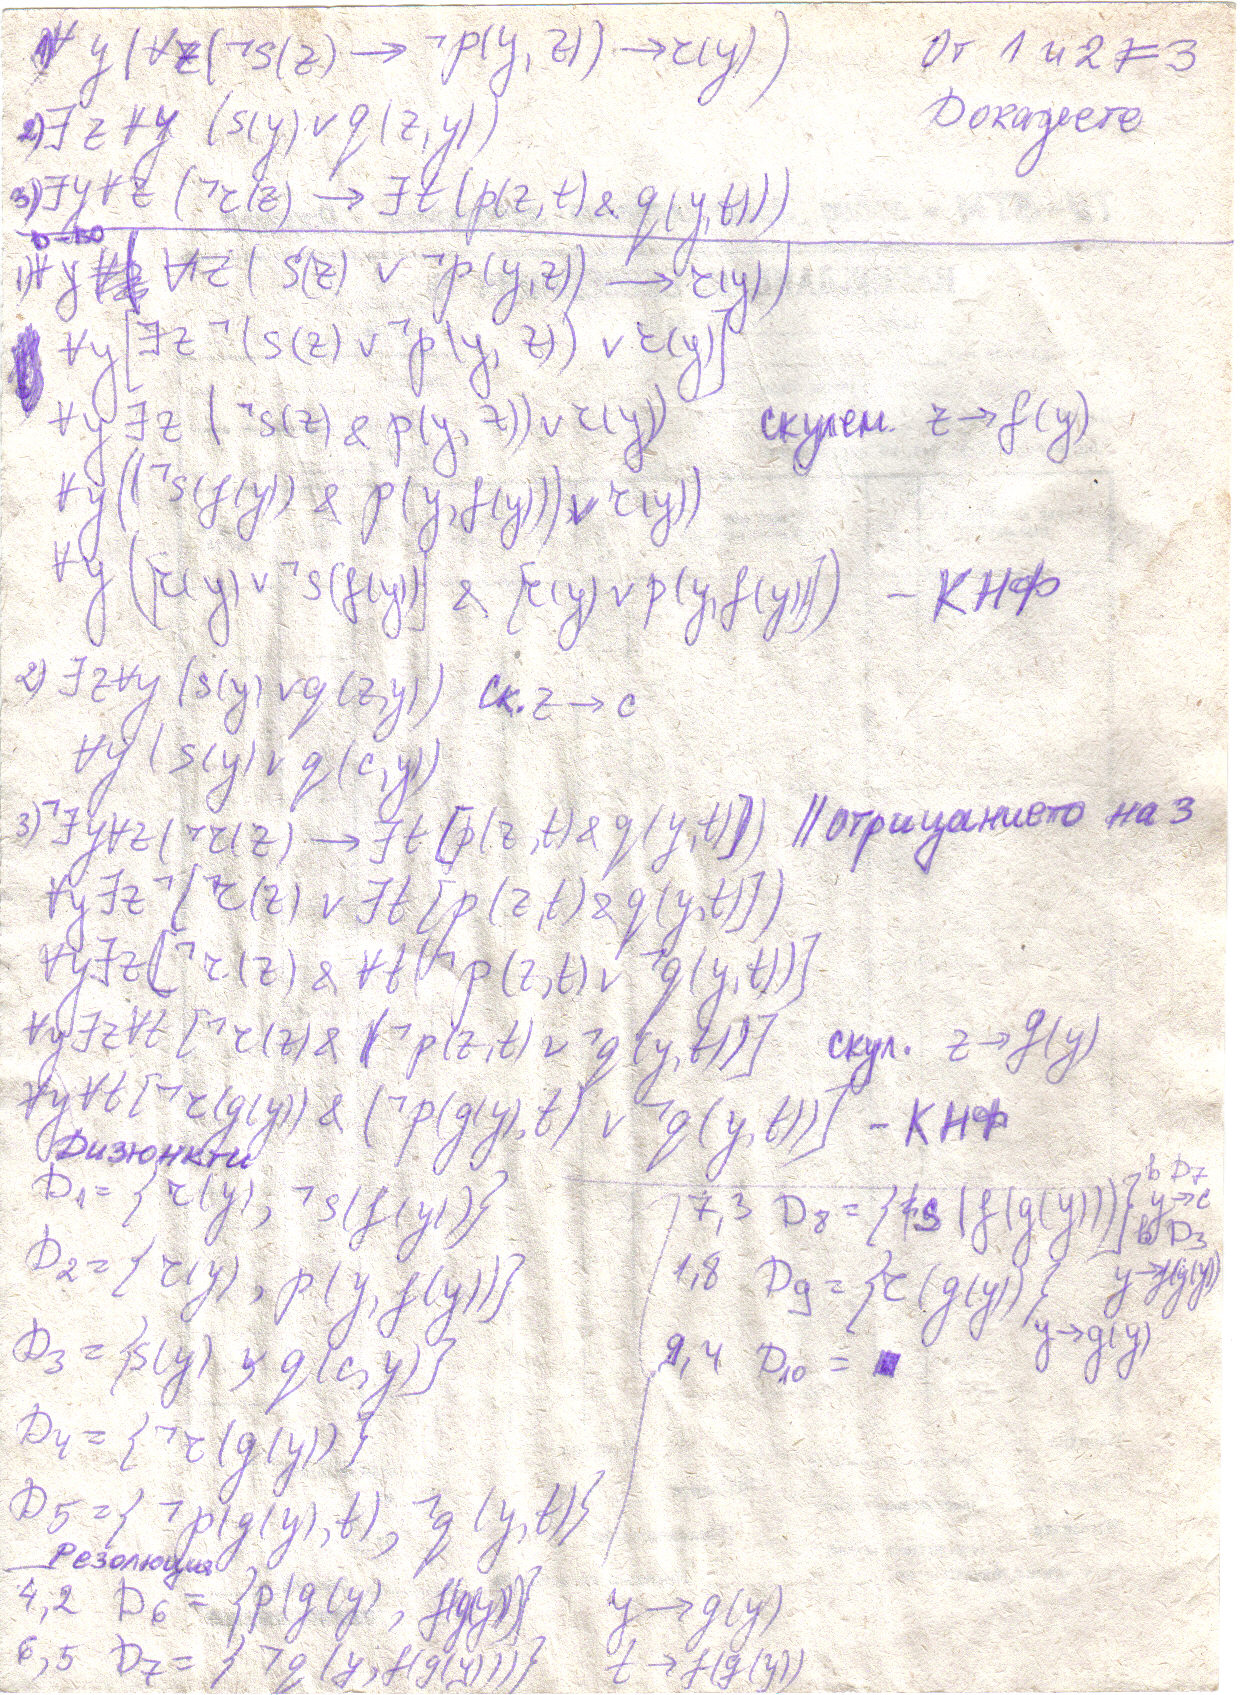 1) ∀y(∀z(¬s(z) → ¬p(y,z)) → r(y))
От 1 и 2 ⊨ 3
Докажете
2) ∃z∀y (s(y) ∨ q(z,y))
3) ∃y∀z (¬r(z) → ∃t(p(z,t) & q(y,t)))
Д-во
1) ∀y( ∀z( s(z) ∨ ¬p(y,z)) → r(y))
∀y[∃z¬(s(z) ∨ ¬p(y,z)) ∨ r(y)]
∀y∃z (¬s(z) & p(y,z)) ∨ r(y)) скулем. z → f(y)
∀y((¬s(f(y)) & p(y,f(y))) ∨ r(y))
∀y([r(y) ∨ ¬s(f(y))] & [r(y) ∨ p(y,f(y))]) – КНФ
2) ∃z∀y (s(y) ∨ q(z,y)) ск. z → c
∀y (s(y) ∨ q(c,y))
3) ¬∃y∀z(¬r(z) → ∃t[p(z,t) & q(y,t)]) // отрицанието на 3
∀y∃z¬[r(z) ∨ ∃t[p(z,t) & q(y,t)])
∀y∃z[¬r(z) & ∀t(¬p(z,t) ∨ ¬q(y,t))]
∀y∃z∀t[¬r(z) & (¬p(z,t) ∨ ¬q(y,t))] скул. z → g(y)
∀y∀t[¬r(g(y)) & (¬p(g(y),t) ∨ ¬q(y,t))] – КНФ
Дизюнкти
D1 = {r(y), ¬s(f(y))}
D2 = {r(y), p(y,f(y))}
D3 = {s(y), q(c,y)}
D4 = {¬r(g(y))}
D5 = {¬p(g(y),t), ¬q(y,t)}
Резолюция
4,2 D6 = {p(g(y), f(g(y)))} y → g(y)
6,5 D7 = {¬q(y,f(g(y)))} t → f(g(y))
7,3 D8 = {s(f(g(y)))} в D7 y → c в D3 y → f(g(y))
1,8 D9 = {r(g(y))} y → g(y)
9,4 D10 = ■